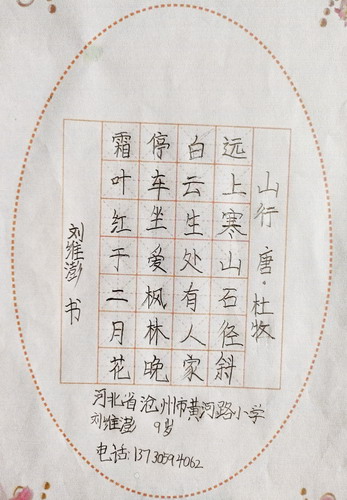 山行 唐·杜牧
远上寒山石径斜
白云生处有人家
停车坐爱枫林晚
霜叶红于二月花
刘维澎 书
河北省沧州市黄河路小学
刘维澎 9岁
电话:13730594062